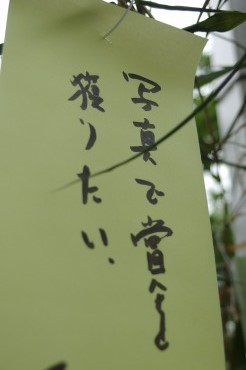 写真で賞を
獲りたい、